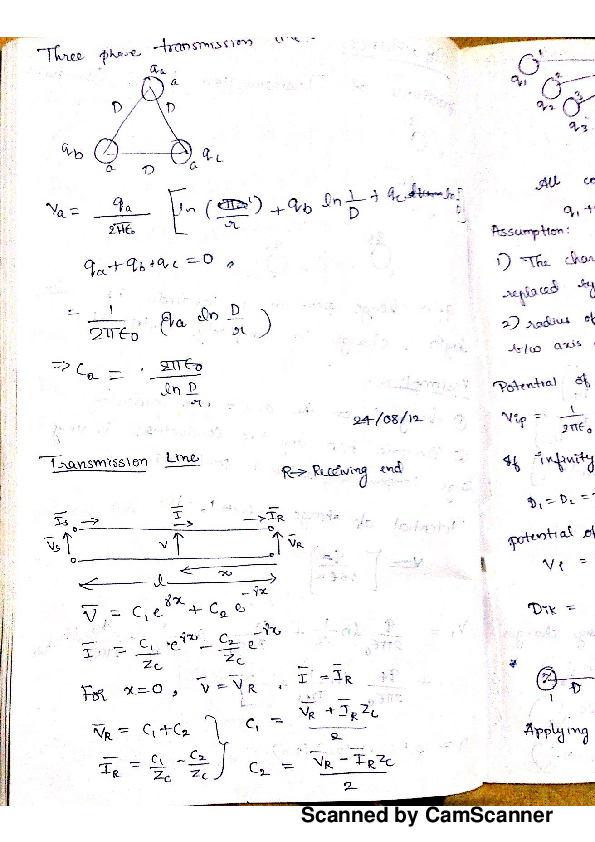 Three phase transmission line.
qa
a
D D
qb a D a qc
Va = qa/2πε₀ [ln ( /r) + qb ln 1/D + qc
qa + qb + qc = 0 ,
= 1/2πε₀ (qa ln D/r)
=> Ca = 2πε₀ / ln D/r
24/08/12
Transmission Line
R→ Receiving end
I̅s → I̅ → → I̅R
V̅s V V̅R
x
l
V̅ = C₁e^γx + C₂ e^-γx
I̅ = C₁/Zc e^γx − C₂/Zc e^-γx
For x=0, V̅ = V̅R , I̅ = I̅R
V̅R = C₁ + C₂
C₁ = (V̅R + I̅R Zc)/2
I̅R = C₁/Zc − C₂/Zc
C₂ = (V̅R − I̅R Zc)/2
1
q1
2
q2
3
q3
All co
q1 +
Assumption:
1) The char
replaced by
2) radius of
b/w axis
Potential of
Vip = 1/2πε₀
If infinity
D₁ = D₂ =
potential of
Vi =
Dik =
*
1
D
Applying
Scanned by CamScanner